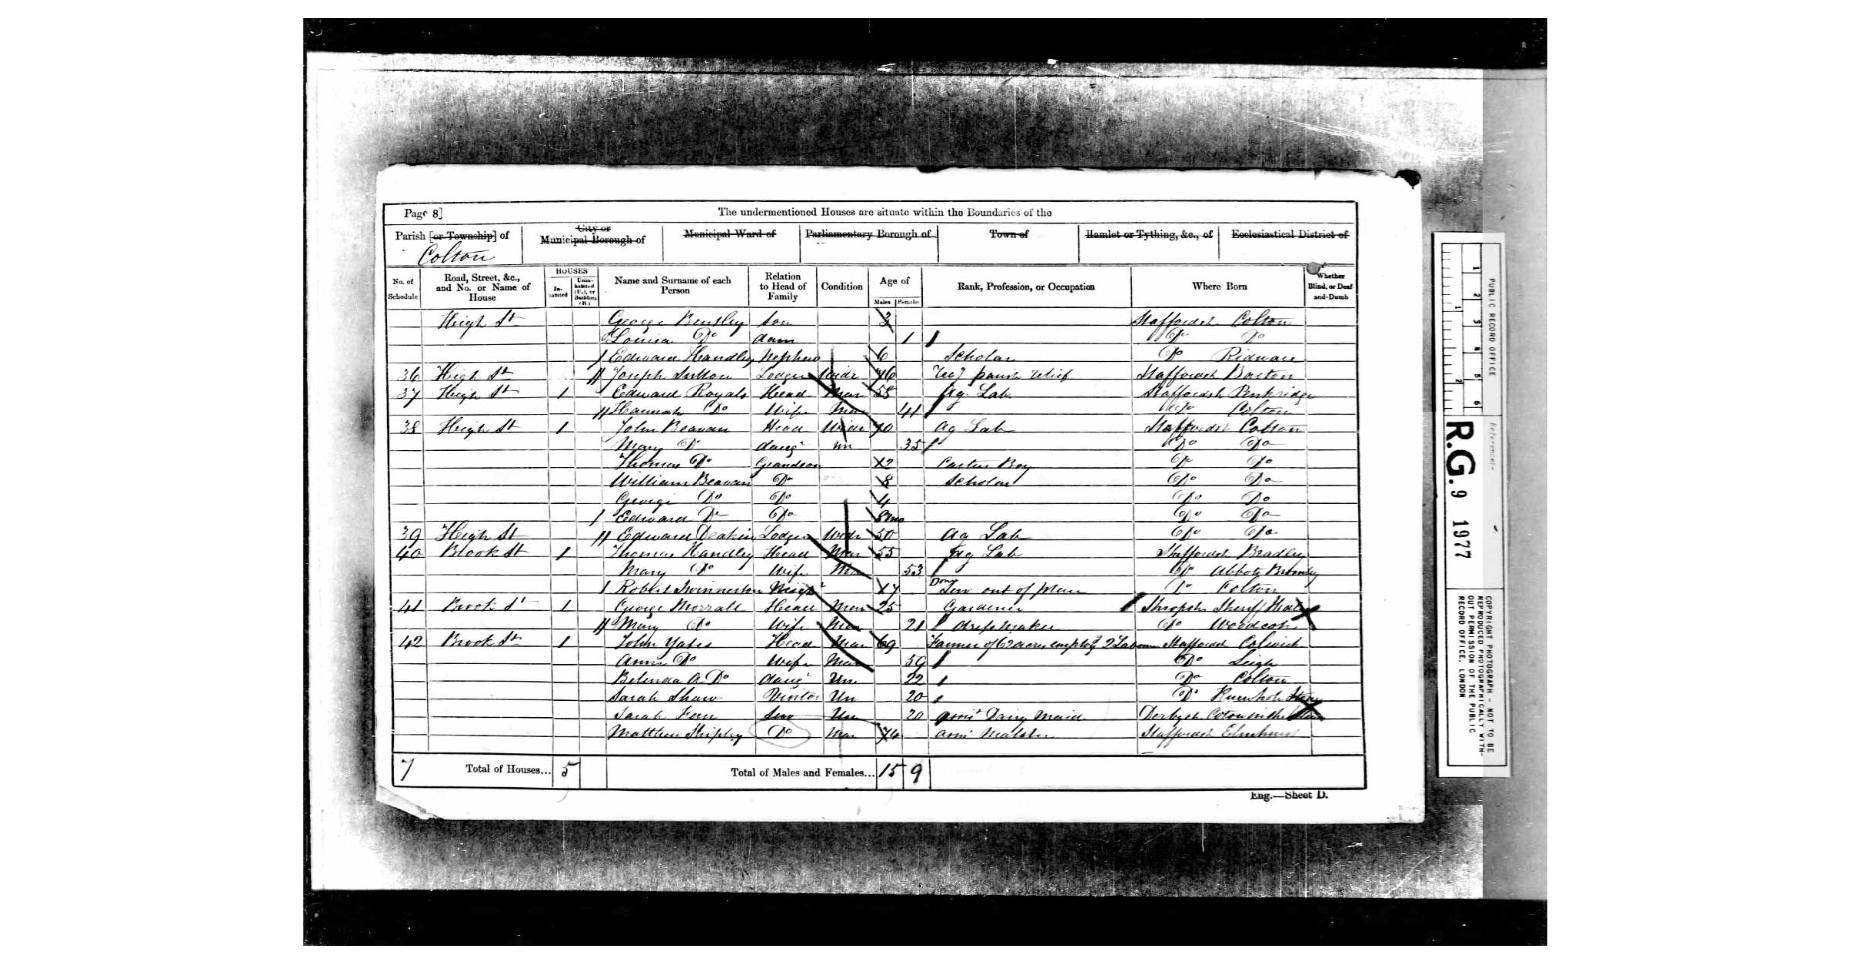 Page 8]
The undermentioned Houses are situate within the Boundaries of the
Parish [or Township] of
Colton
City or
Municipal Borough of
Municipal Ward of
Parliamentary Borough of
Town of
Hamlet or Tything, &c., of
Ecclesiastical District of
No. of Schedule
Road, Street, &c., and No. or Name of House
HOUSES
In-habited
Unin-habited (U.), or Building (B.)
Name and Surname of each Person
Relation to Head of Family
Condition
Age of
Males
Females
Rank, Profession, or Occupation
Where Born
Whether Blind, or Deaf-and-Dumb
Heigh St George Bentley Son 3 Staffordsh Colton
Louisa Do 1 Do Do
Edward Handley Nephew 6 Scholar Do Ridware
36 Heigh St Joseph Lodger Widr 76 parish relief Staffordsh Barton
37 Heigh St 1 Edward Royals Head Mar 58 Ag. Lab Staffordsh Penkridge
Hannah Do Wife Mar 41 Do Colton
38 Heigh St 1 John Beavan Head Widr 70 Ag Lab Staffordsh Colton
Mary Do daug Un 35 Do Do
Thomas Do Grandson 12 Carters Boy Do Do
William Beavan Do 8 Scholar Do Do
George Do Do 4 Do Do
Edward Do Do 8mo Do Do
39 Heigh St Edward Deakin Lodger Widr 50 Ag Lab Do Do
40 Brook St 1 Thomas Handley Head Mar 55 Ag Lab Staffordsh Bradley
Mary Do Wife Mar 53 Do Abbots Bromley
Robert Swinnerton 17 Dom Serv out of place Do Colton
41 Brook St 1 George Morrall Head Mar 25 Gardener Shropsh Sheriff Hales
Mary Do Wife Mar 21 dressmaker Do Woodcote
42 Brook St 1 John Yates Head Mar 69 Farmer of acres employg 2 Labourers Staffordsh Colwich
Ann Do Wife Mar 59 Do Leigh
Belinda A. Do daug Un 22 Do Colton
Sarah Shaw Visitor Un 20 Do
Sarah Fern Serv Un 20 Dairy Maid Derbysh Coton in the
Matthew Shipley Do Mar 74 Maltster Staffordsh Elmhurst
7 Total of Houses... 5
Total of Males and Females... 15 9
Eng.—Sheet D.
PUBLIC RECORD OFFICE
1 2 3 4 5 6
Reference:-
R.G. 9 1977
COPYRIGHT PHOTOGRAPH - NOT TO BE REPRODUCED PHOTOGRAPHICALLY WITHOUT PERMISSION OF THE PUBLIC RECORD OFFICE, LONDON